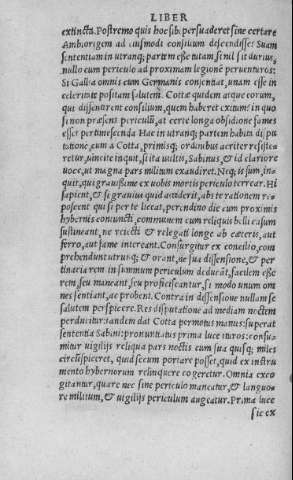 LIBER
extincta. Postremo quis hoc sibi persuaderet sine certare
Ambiorigem ad eiusmodi consilium descendisse? Suam
sententiam in utranq; partem esse tutam si nil sit durius,
nullo cum periculo ad proximam legionē peruenturos:
Si Gallia omnis cum Germanis consentiat, unam esse in
celeritate positam salutem. Cottæ quidem atque eorum,
qui dissentirent consilium, quem haberet exitum? in quo
si non præsens periculū, at certe longa obsidione fames
esset pertimescenda. Hac in utranq; partem habita dispu
tatione, cum a Cotta, primisq; ordinibus acriter resiste
retur, uincite inquit, si ita uultis, Sabinus, & id clariore
uoce, ut magna pars militum exaudiret. Neq; is sum, in-
quit, qui grauissime ex uobis mortis periculo terrear. Hi
sapient, & si grauius quid acciderit, abs te rationem re-
poscent qui si per te liceat, perendino die cum proximis
hybernis coniuncti, communem cum reliquis belli casum
sustineant, ne reiecti & relegati longe ab cæteris, aut
ferro, aut fame intereant. Consurgitur ex concilio, com
prehendunt utrunq; & orant, ne sua dissensione, & per
tinacia rem in summum periculum deducāt, facilem esse
rem, seu maneant, seu proficiscantur, si modo unum om
nes sentiant, ac probent. Contra in dissensione nullam se
salutem perspicere. Res disputatione ad mediam noctem
perducitur. tandem dat Cotta permotus manus: superat
sententia Sabini: pronuntiatur prima luce ituros: consu-
mitur uigiliis reliqua pars noctis cum sua quisq; miles
circūspiceret, quid secum portare posset, quid ex instru
mento hybernorum relinquere cogeretur. Omnia exco
gitantur, quare nec sine periculo maneatur, & languo-
re militum, & uigiliis periculum augeatur. Prima luce
sic ex